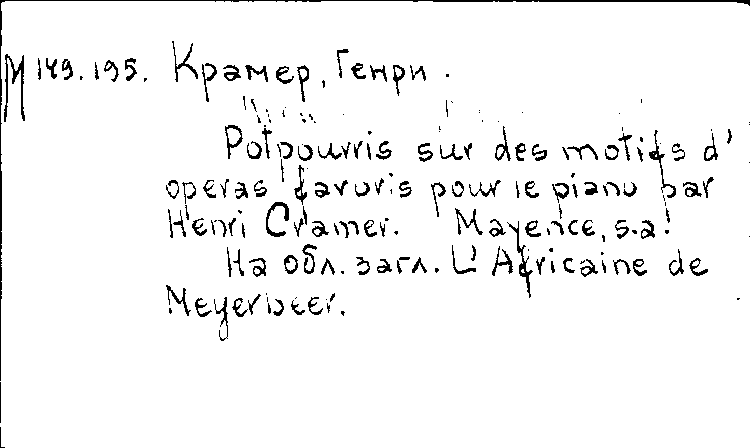 М 149.195. Крамер, Генри.
Potpourris sur des motifs d'
operas favoris pour le piano par
Henri Cramer. Mayence, s.a.
На обл. загл. L'Africaine de
Meyerbeer.